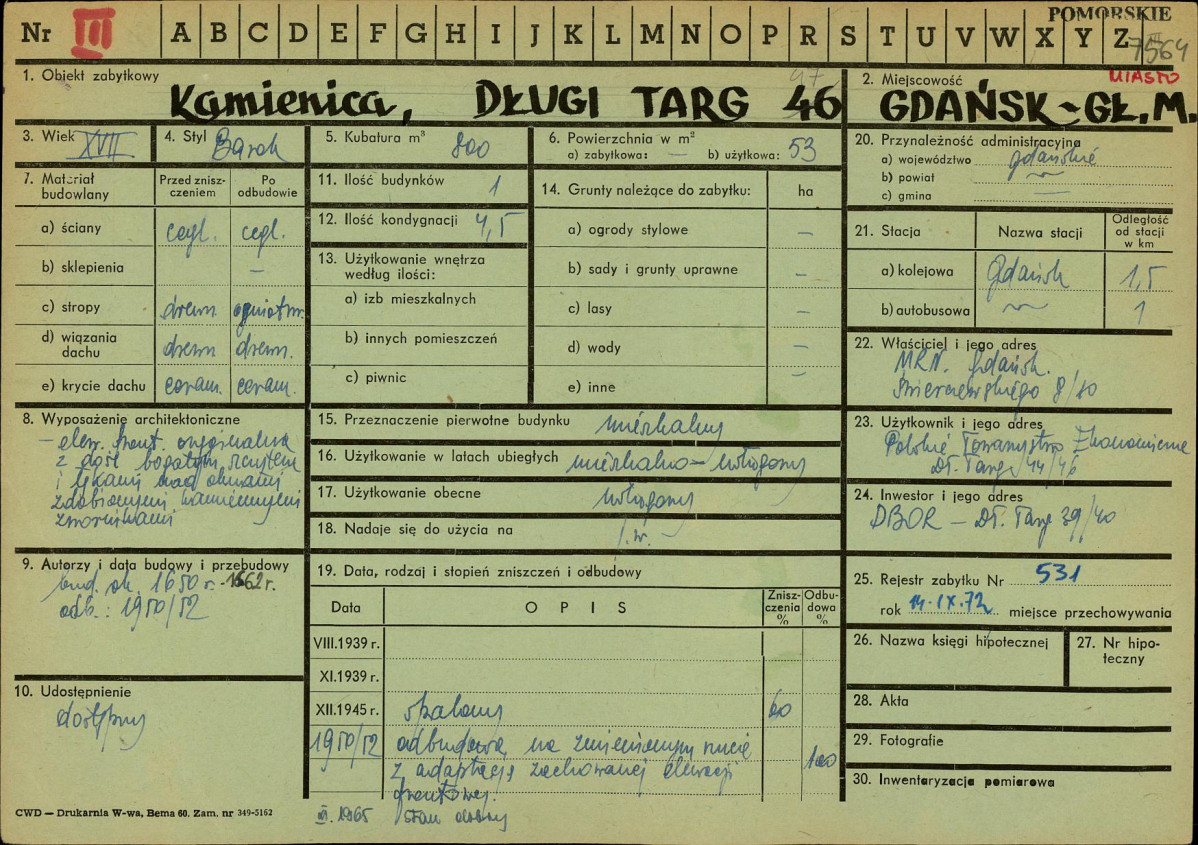 POMORSKIE
Nr III A B C D E F G H I J K L M N O P R S T U V W X Y Z
7564
MIASTO
1. Obiekt zabytkowy
Kamienica, DŁUGI TARG 46
47
2. Miejscowość
GDAŃSK-GŁ.M.
3. Wiek XVII
4. Styl Barok
5. Kubatura m³ 800
6. Powierzchnia w m²
a) zabytkowa: — b) użytkowa: 53
7. Materiał budowlany
Przed zniszczeniem
Po odbudowie
a) ściany cegl. cegl.
b) sklepienia –
c) stropy drewn ogniotrw.
d) wiązania dachu drewn drewn.
e) krycie dachu ceram. ceram.
8. Wyposażenie architektoniczne
– elew. front. oryginalna
z dość bogatym
i łękami nad oknami
zdobionymi kamiennymi
zwornikami
9. Autorzy i data budowy i przebudowy
bud. ok. 1650 r. -1662 r.
odb.: 1950/52
10. Udostępnienie
dostępny
11. Ilość budynków 1
12. Ilość kondygnacji 4,5
13. Użytkowanie wnętrza według ilości:
a) izb mieszkalnych
b) innych pomieszczeń
c) piwnic
14. Grunty należące do zabytku: ha
a) ogrody stylowe –
b) sady i grunty uprawne –
c) lasy –
d) wody –
e) inne –
15. Przeznaczenie pierwotne budynku mieszkalny
16. Użytkowanie w latach ubiegłych mieszkalno-usługowy
17. Użytkowanie obecne usługowy
18. Nadaje się do użycia na j.w.
19. Data, rodzaj i stopień zniszczeń i odbudowy
Data OPIS Zniszczenia % Odbudowa %
VIII.1939 r.
XI.1939 r.
XII.1945 r. spalony 60
1950/52 odbudowa na zmienionym rzucie 100
z adaptacją zachowanej elewacji
frontowej.
III. 1965 stan dobry
20. Przynależność administracyjna
a) województwo gdańskie
b) powiat
c) gmina —
21. Stacja
Nazwa stacji
Odległość od stacji w km
a) kolejowa Gdańsk 1,5
b) autobusowa 1
22. Właściciel i jego adres
MRN. Gdańsk.
Świerczewskiego 8/10
23. Użytkownik i jego adres
Polskie Towarzystwo Ekonomiczne
Dł. Targ 44/46
24. Inwestor i jego adres
DBOR – Dł. Targ 39/40
25. Rejestr zabytku Nr 531
rok 14.IX.72 miejsce przechowywania
26. Nazwa księgi hipotecznej
27. Nr hipoteczny
28. Akta
29. Fotografie
30. Inwentaryzacja pomiarowa
CWD — Drukarnia W-wa, Bema 60. Zam. nr 349-5162